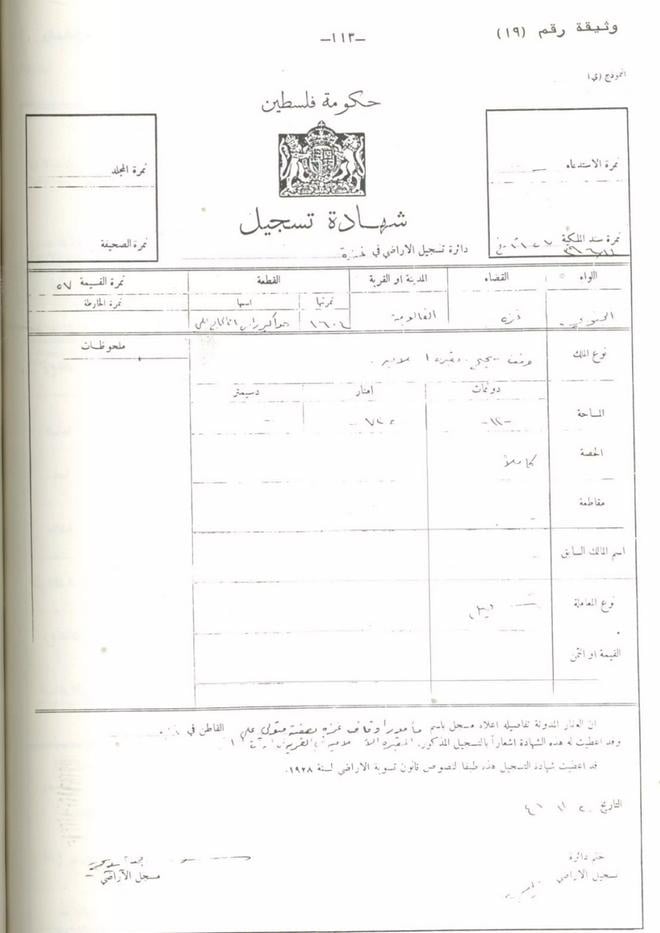 وثيقة رقم (١٩)
-١١٣-
النموذج (ي)
حكومة فلسطين
نمرة الاستدعاء
نمرة المجلد
شهادة تسجيل
نمرة سند الملكية
نمرة الصحيفة
دائرة تسجيل الاراضي في غزة
اللواء القضاء المدينة او القرية القطعة نمرة القسيمة ٥٧
نمرتها اسمها نمرة الخارطة
الجنوبي غزه الفالوجة ١٦٠٤
ملحوظات
نوع الملك وقف صحيح مقبرة
دونمات امتار دسيمتر
المساحة -١١-
الحصة كاملا
مقاطعة
اسم المالك السابق
نوع المعاملة
القيمة او الثمن
ان العقار المدونة تفاصيله اعلاه مسجل باسم مأمور اوقاف غزه بصفته متولي على القاطن في
وقد اعطيت له هذه الشهادة اشعارا بالتسجيل المذكور.
قد اعطيت شهادة التسجيل هذه طبقا لنصوص قانون تسوية الاراضي لسنة ١٩٢٨.
التاريخ
ختم دائرة
تسجيل الاراضي
مسجل الأراضي